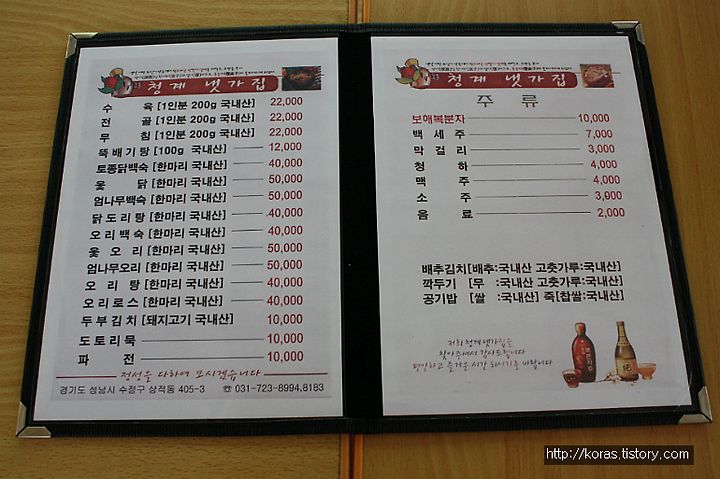 청계 냇가집
수 육 [1인분 200g 국내산] 22,000
전 골 [1인분 200g 국내산] 22,000
무 침 [1인분 200g 국내산] 22,000
뚝배기탕 [100g 국내산] 12,000
토종닭백숙 [한마리 국내산] 40,000
옻 닭 [한마리 국내산] 50,000
엄나무백숙 [한마리 국내산] 50,000
닭도리탕 [한마리 국내산] 40,000
오리백숙 [한마리 국내산] 40,000
옻오리 [한마리 국내산] 50,000
엄나무오리 [한마리 국내산] 50,000
오리탕 [한마리 국내산] 40,000
오리로스 [한마리 국내산] 40,000
두부김치 [돼지고기 국내산] 10,000
도토리묵 10,000
파 전 10,000
정성을 다하여 모시겠습니다
경기도 성남시 수정구 상적동 405-3 ☏ 031-723-8994,8183
청계 냇가집
주류
보해복분자 10,000
백세주 7,000
막걸리 3,000
청하 4,000
맥주 4,000
소주 3,000
음료 2,000
배추김치 [배추:국내산 고춧가루:국내산]
깍두기 [무 :국내산 고춧가루:국내산]
공기밥 [쌀 :국내산] 죽[찹쌀:국내산]
저희 청계 냇가집을
찾아주셔서 감사드립니다
평안하고 즐거운 시간 되시기를 바랍니다
http://koras.tistory.com